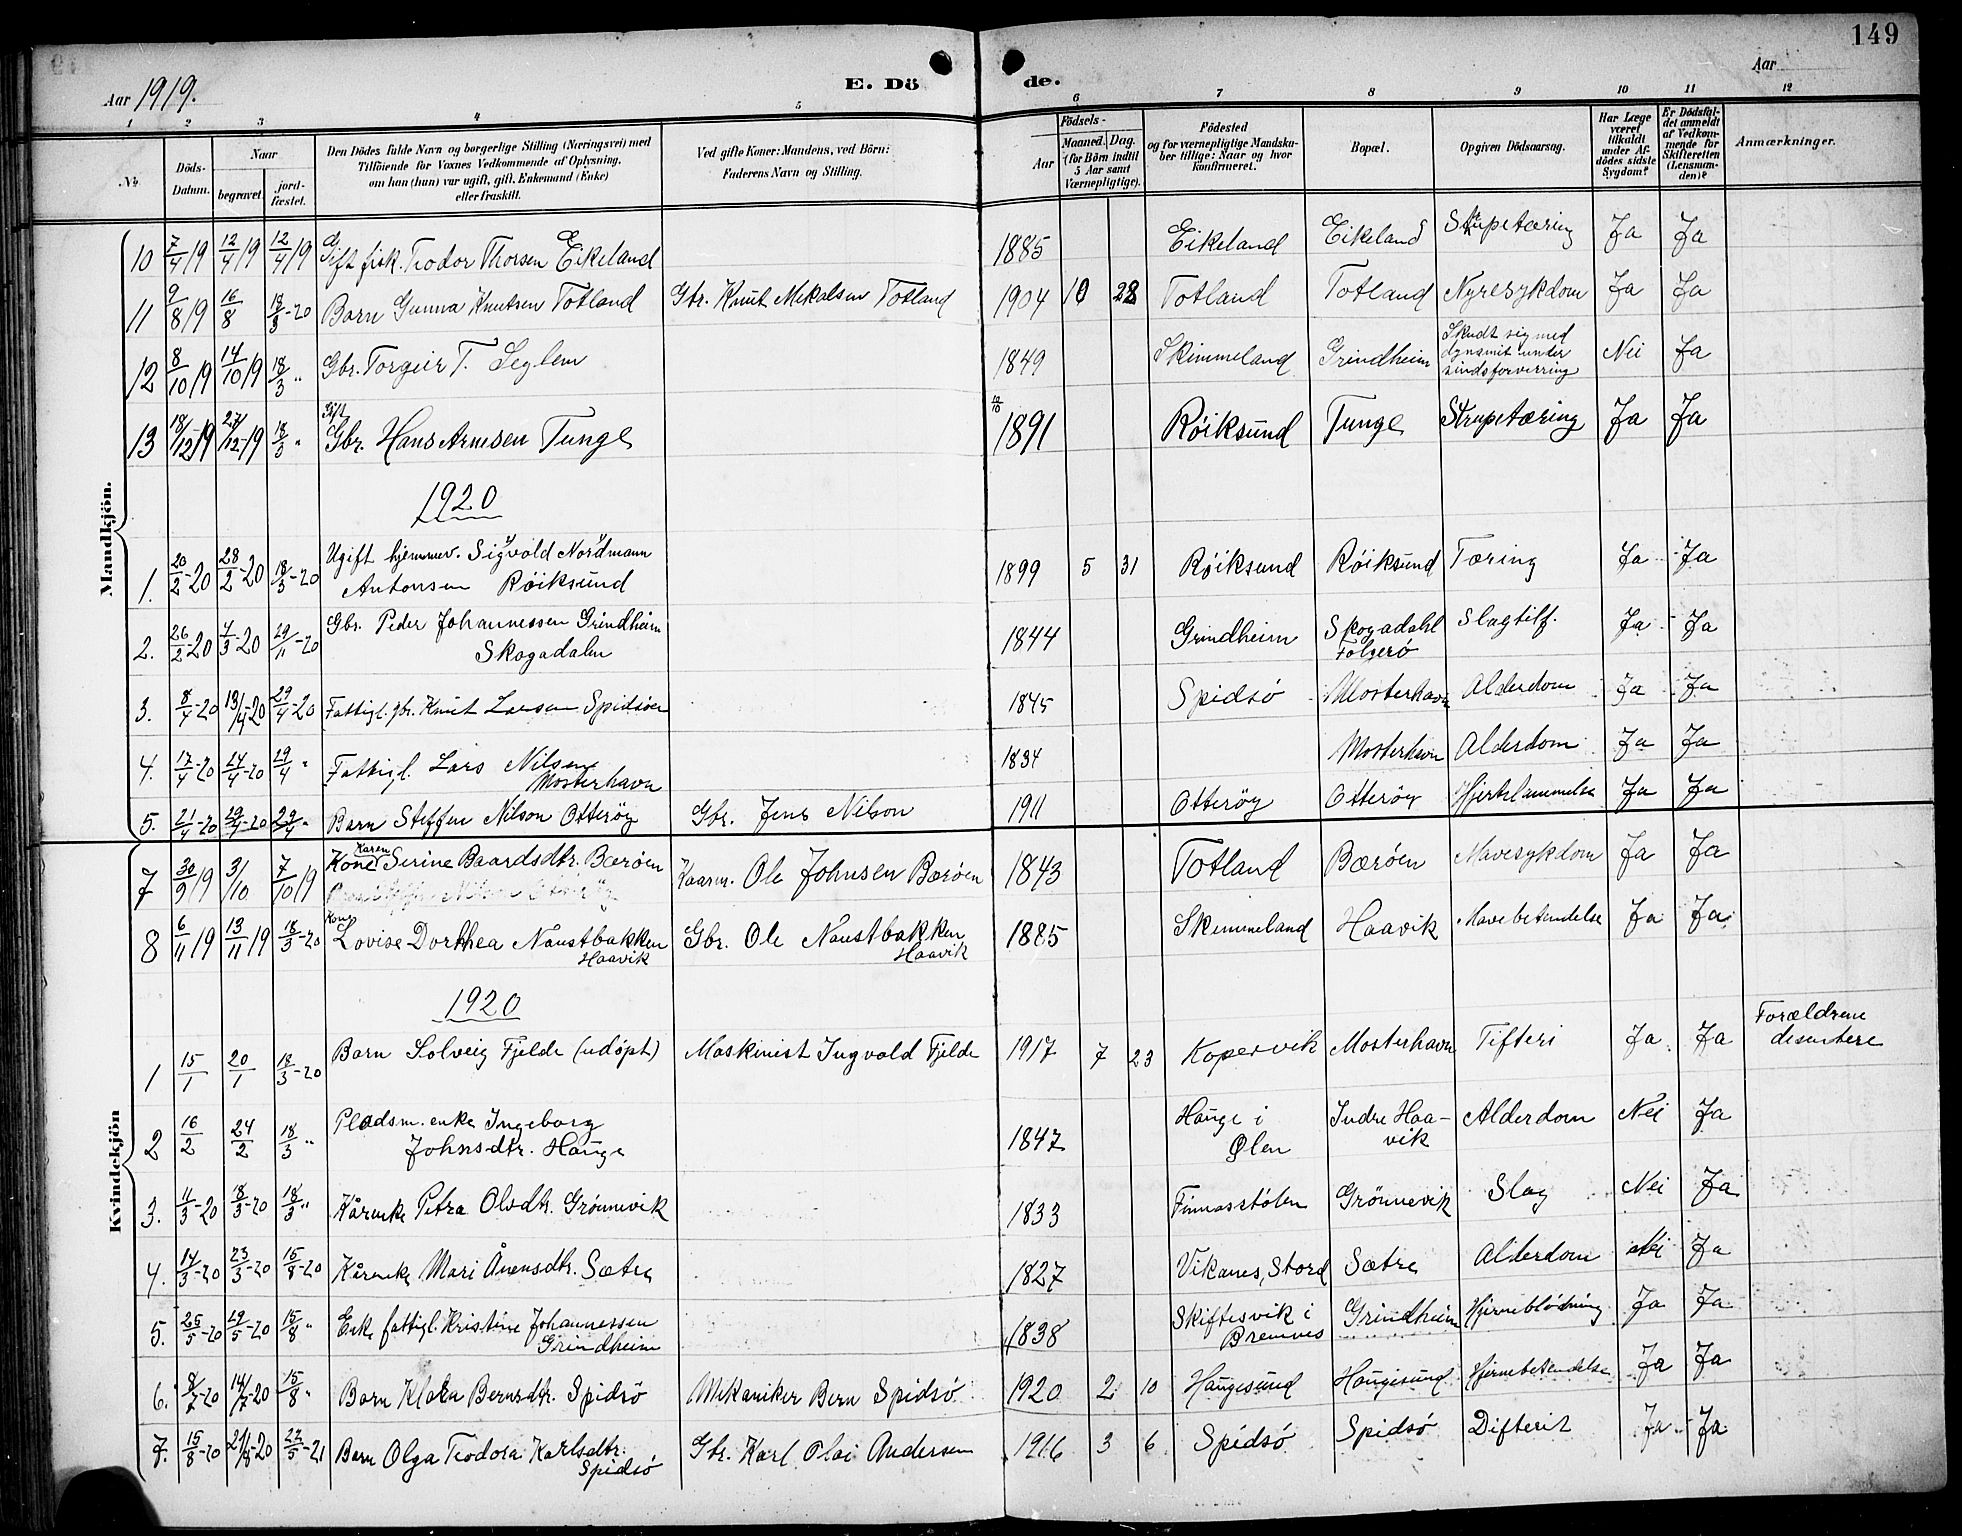 149
Aar 1919.
E. Dö de.
Aar
1 2 3 4 5 6 7 8 9 10 11 12
No.
Döds-Datum.
Naar
begravet.
jord-fæstet.
Den Dödes fulde Navn og borgerlige Stilling (Næringsvei) med
Tilföiende for Voxnes Vedkommende af Oplysning,
om han (hun) var ugift, gift, Enkemand (Enke)
eller fraskilt.
Ved gifte Koner: Mandens, ved Börn:
Faderens Navn og Stilling.
Födsels-
Aar
Maaned. Dag.
(for Börn indtil
5 Aar samt
Værnepligtige).
Födested
og for værnepligtige Mandska-
ber tillige: Naar og hvor
Konfirmeret.
Bopæl.
Opgiven Dödsaarsag.
Har Læge
været
tilkaldt
under Af-
dödes sidste
Sygdom?
Er Dödsfal-
det anmeldt
af Vedkom-
mende for
Skifteretten
(Lensman-
den)?
Anmærkninger.
Mandkjön.
10 7/4 19 12/4 19 12/4 19 Gift fisk. Teodor Thorsen Eikeland 1885 Eikeland Eikeland Strupetæring Ja Ja
11 9/8 19 16/8 18/3-20 Barn Gunna Knutsen Totland Gbr. Knut Mekalsen Totland 1904 10 28 Totland Totland Nyresykdom Ja Ja
12 8/10 19 14/10 19 18/3 " Gbr. Torgeir T. Seglem 1849 Skimmeland Grindheim Skudt sig med
dynamit under
sindsforvirring Nei Ja
13 18/12 19 27/12-19 18/3 " Gift
Gbr. Hans Arnesen Tunge 1891 Röiksund Tunge Strupetæring Ja Ja
1920
1. 20/2-20 28/2-20 18/3-20 Ugift hjemmev. Sigvold Nordmann
Antonsen Röiksund 1899 5 31 Röiksund Röiksund Tæring Ja Ja
2. 26/2-20 4/3-20 29/11-20 Gbr. Peder Johannessen Grindheim
Skogadalen 1844 Grindheim Skogadahl
Folgerö Slagtilf. Ja Ja
3. 8/4-20 13/4-20 29/4-20 Fattigl. gbr. Knut Larsen Spidsöen 1845 Spidsö Mosterhavn Alderdom Ja Ja
4. 17/4-20 24/4-20 29/4 " Fattigl. Lars Nilsen
Mosterhavn 1834 Mosterhavn Alderdom Ja Ja
5. 21/4-20 29/4-20 29/4 " Barn Steffen Nilson Otteröy Gbr. Jens Nilson 1911 Otteröy Otteröy Hjertelammelse Ja Ja
Kvindekjön
7 30/9 19 3/10 7/10 19 Kone Karen Serine Baardsdtr. Bæröen Kaarm. Ole Johnsen Bæröen 1843 Totland Bæröen Mavesykdom Ja Ja
8 6/11 19 13/11 19 18/3-20 Kone
Lovise Dorthea Naustbakken
Haavik Gbr. Ole Naustbakken
Haavik 1885 Skimmeland Haavik Mavebetendelse Ja Ja
1920
1 15/1 20/1 18/3-20 Barn Solveig Fjelde (udöpt) Maskinist Ingvald Fjelde 1917 7 23 Kopervik Mosterhavn Tifteri Ja Ja Forældrene
disentere
2 16/2 24/2 18/3 " Pladsm. enke Ingeborg
Johnsdtr. Hauge 1847 Hauge i
Ølen Indre Haa-
vik Alderdom Nei Ja
3. 11/3-20 18/3-20 18/3 " Kårenke Petra Olsdtr. Grönnevik 1833 Finnasstölen Grönnevik Slag Nei Ja
4. 14/3-20 23/3-20 15/8-20 Kårenke Mari Ånensdtr. Sætre 1827 Vikanes, Stord Sætre Alderdom Nei Ja
5. 25/5-20 29/5-20 15/8 " Enke fattigl. Kristine Johannessen
Grindheim 1838 Skiftesvik i
Bremnes Grindheim Hjerneblödning Ja Ja
6. 8/7-20 14/7-20 15/8 " Barn Klara Bernsdtr. Spidsö Mekaniker Bern Spidsö 1920 2 10 Haugesund Haugesund Hjernebetendelse Ja Ja
7. 15/8-20 21/8-20 22/5-21 Barn Olga Teodora Karlsdtr.
Spidsö Gbr. Karl Olai Andersen 1916 3 6 Spidsö Spidsö Difterit Ja Ja